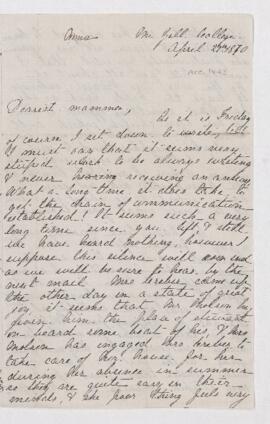 Anna
Mc Gill College
April 29th 1870
Dearest mamma,
As it is Friday
of course I set down to write, but
I must say that it seems very
stupid work to be always writing
& never receiving an answer
What a long time it does take to
get the chain of communication
established! It seems such a very
long time since you left, & still
we have heard nothing, however I
suppose this silence will soon end
as we will be sure to hear by the
next mail. Mrs came up
the other day in a state of great
joy, it seems that Mr Molson is
giving him the place of steward
on board some boat of his, & Mrs
Molson has engaged Mrs to
take care of her house for her
during her absence in summer
so they are quite easy in their
minds, & she poor thing feels very